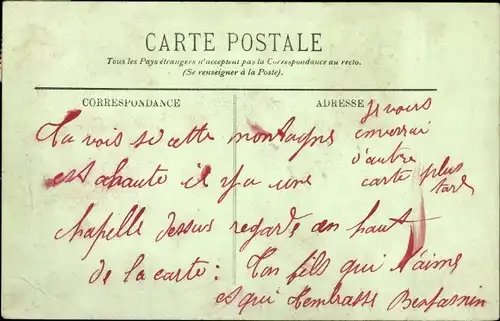 CARTE POSTALE
Tous les Pays étrangers n'acceptent pas la Correspondance au recto.
(Se renseigner à la Poste).
CORRESPONDANCE
ADRESSE
Ta vois si cette montagne
est ahaute il y a une
chapelle dessus regarde en haut
de la carte : Ton fils qui t'aime
et qui t'embrasse Benjamin
Je vous
enverrai
d'autre
carte plus
tard